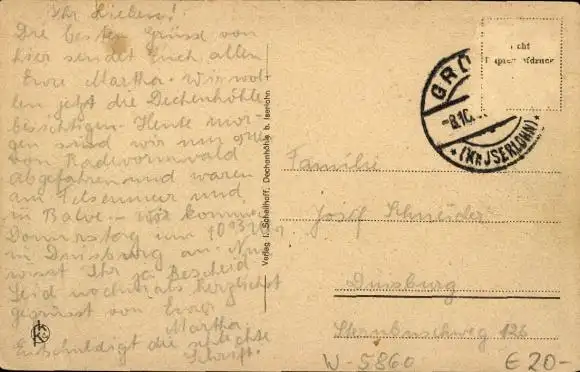 Ihr Lieben!
Die besten Grüsse von
hier sendet Euch allen
Eure Martha. Wir wol-
len jetzt die Dechenhöhle
besichtigen. Heute mor-
gen sind wir nun
von Radevormwald
abgefahren und waren
am Felsenmeer und
in Balve. – Wir kommen
Donnerstag um
in Duisburg an. Nun
wisst Ihr ja Bescheid.
Seid nochmals herzlichst
gegrüsst von Eurer
Martha
Entschuldigt die schlechte
Schrift.
Verlag I. Schellhoff, Dechenhöhle b. Iserlohn
GRÜ
-8.10.
(KR. ISERLOHN)
Familie
Josef Schneider
Duisburg
Sternbuschweg 126
W-5860
€ 20-